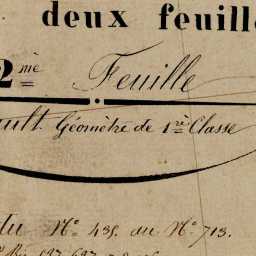 deux feuill
2me Feuille
ult. Géomètre de 1re Classe
du N° 435. au N° 713.